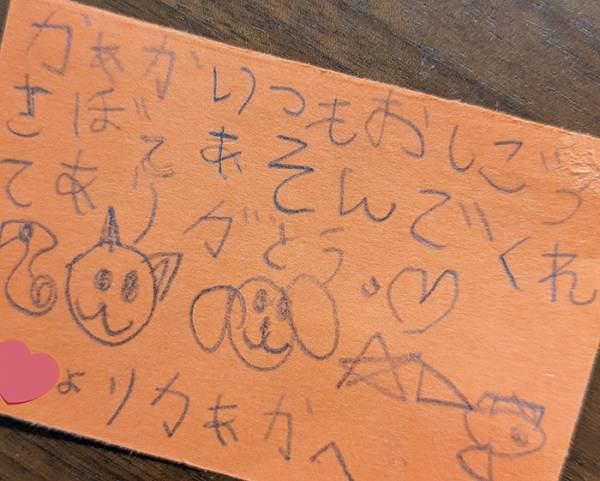 かぁかいつもおしごつ
さぼてあそんでくれ
てありがとう
よりかぁかへ